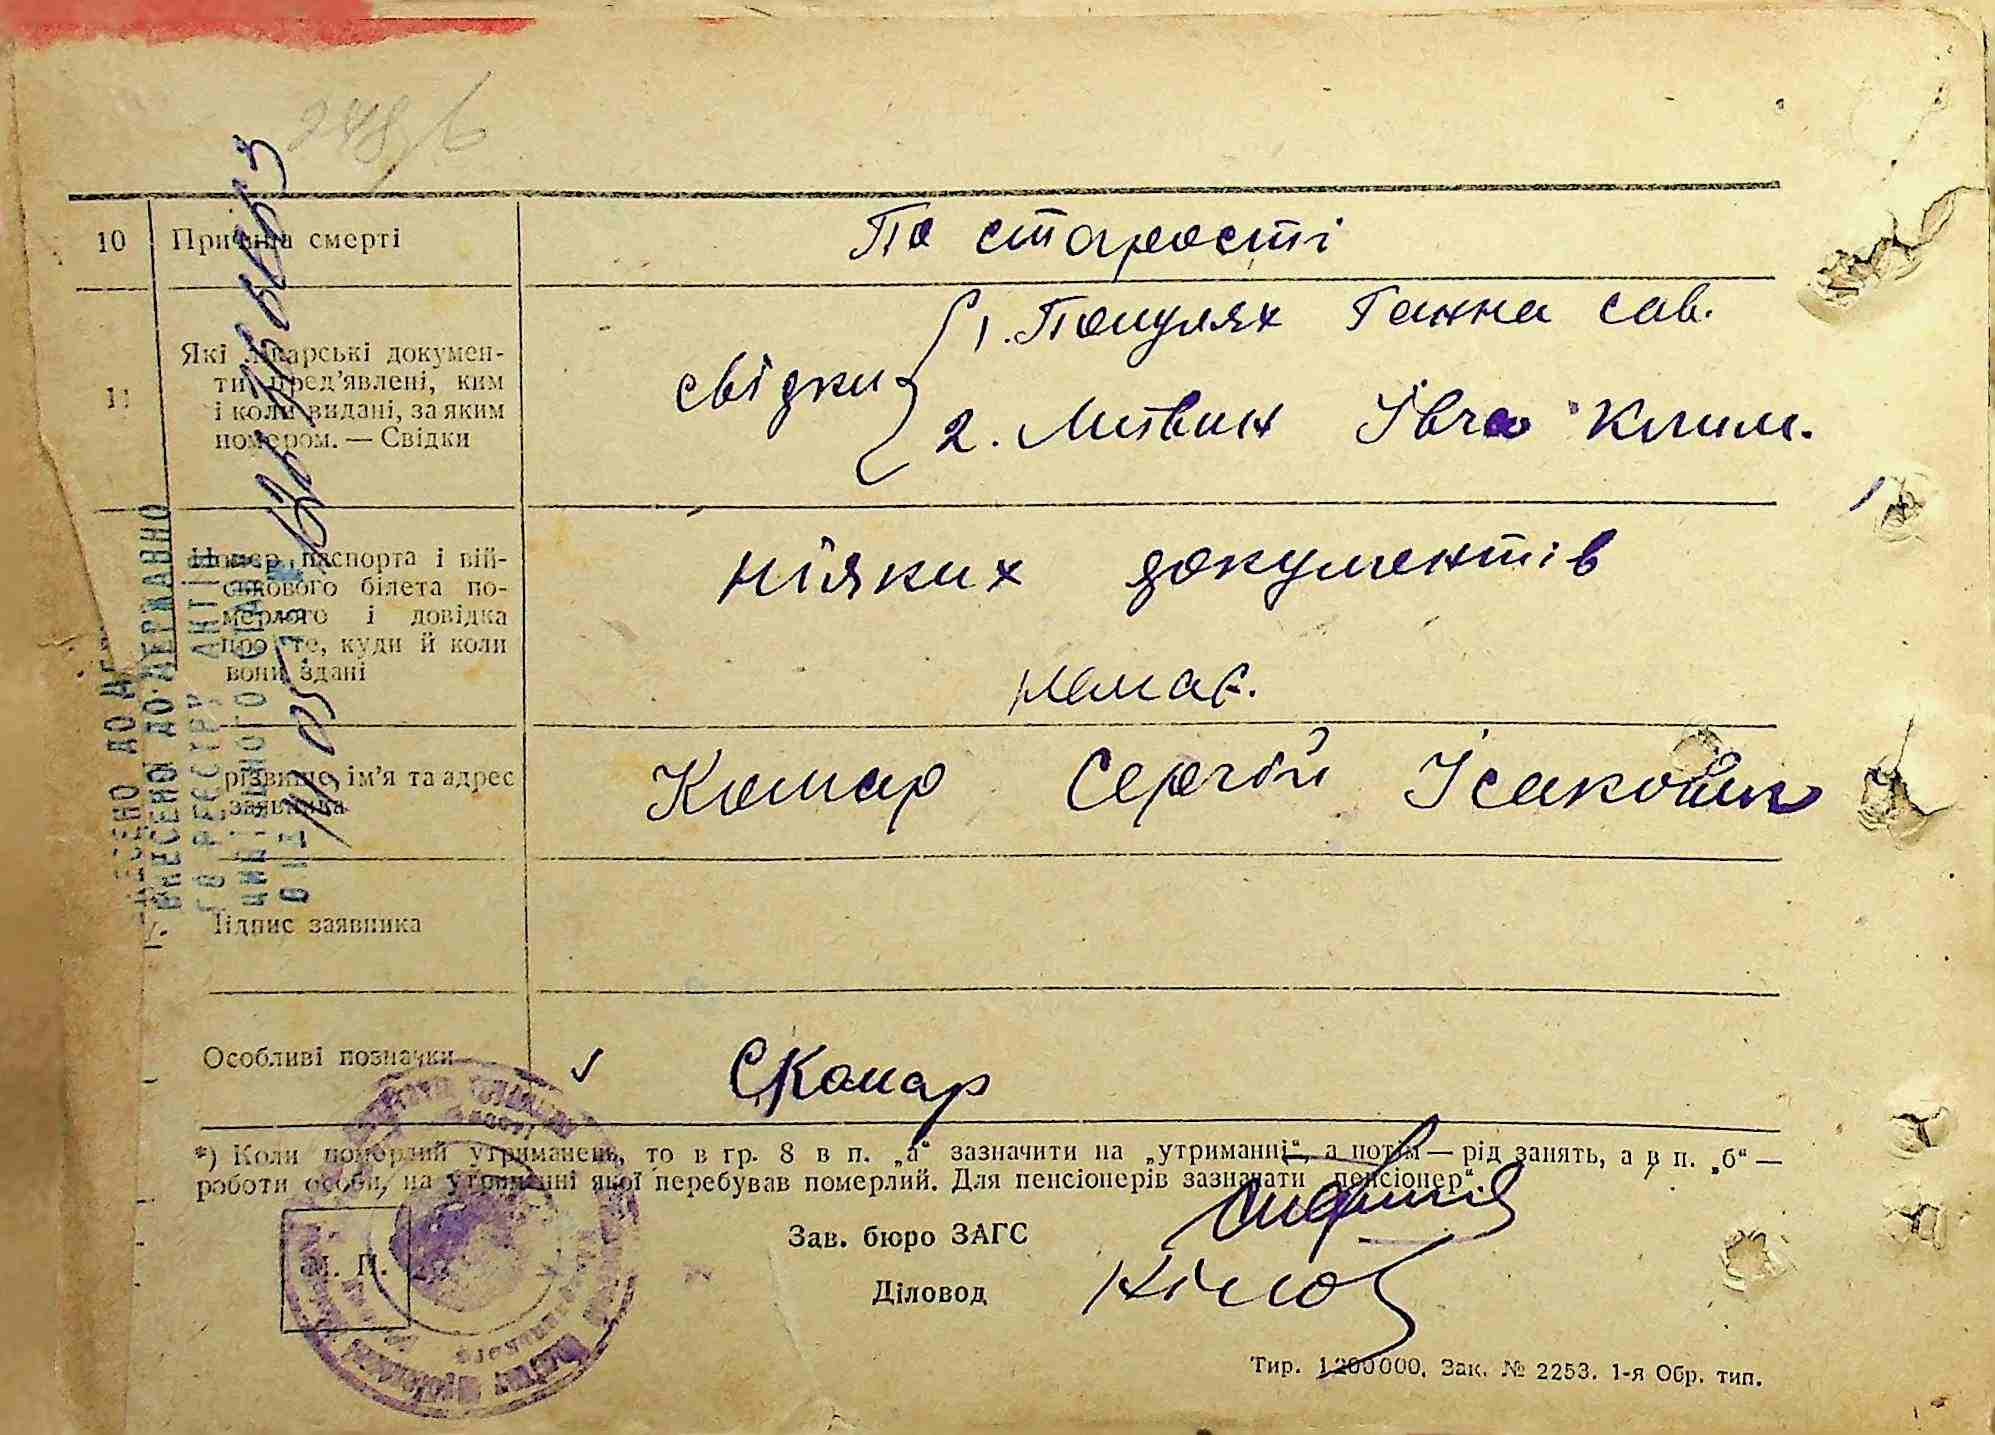 10 Причина смерті По старості
11 Які лікарські докумен-
ти пред'явлені, ким
і коли видані, за яким
номером. — Свідки
свідки
1. Популях Ганна Сав.
2. Литвин Івга Клим.
Номер паспорта і вій-
ськового білета по-
мерлого і довідка
про те, куди й коли
вони здані
ніяких документів
немає.
різвище, ім'я та адрес
заявника
Комар Сергій Ісакович
Підпис заявника
Особливі позначки
СКомар
*) Коли померлий утриманець, то в гр. 8 в п. „а“ зазначити на „утриманні“, а потім — рід занять, а в п. „б“ —
роботи особи, на утриманні якої перебував померлий. Для пенсіонерів зазначати „пенсіонер“.
Зав. бюро ЗАГС
М. П.
Діловод
Тир. 1200000. Зак. № 2253. 1-я Обр. тип.
ВНЕСЕНО ДО ДЕРЖАВНО
ГО РЕЄСТРУ АКТІВ
ЦИВІЛЬНОГО СТАНУ